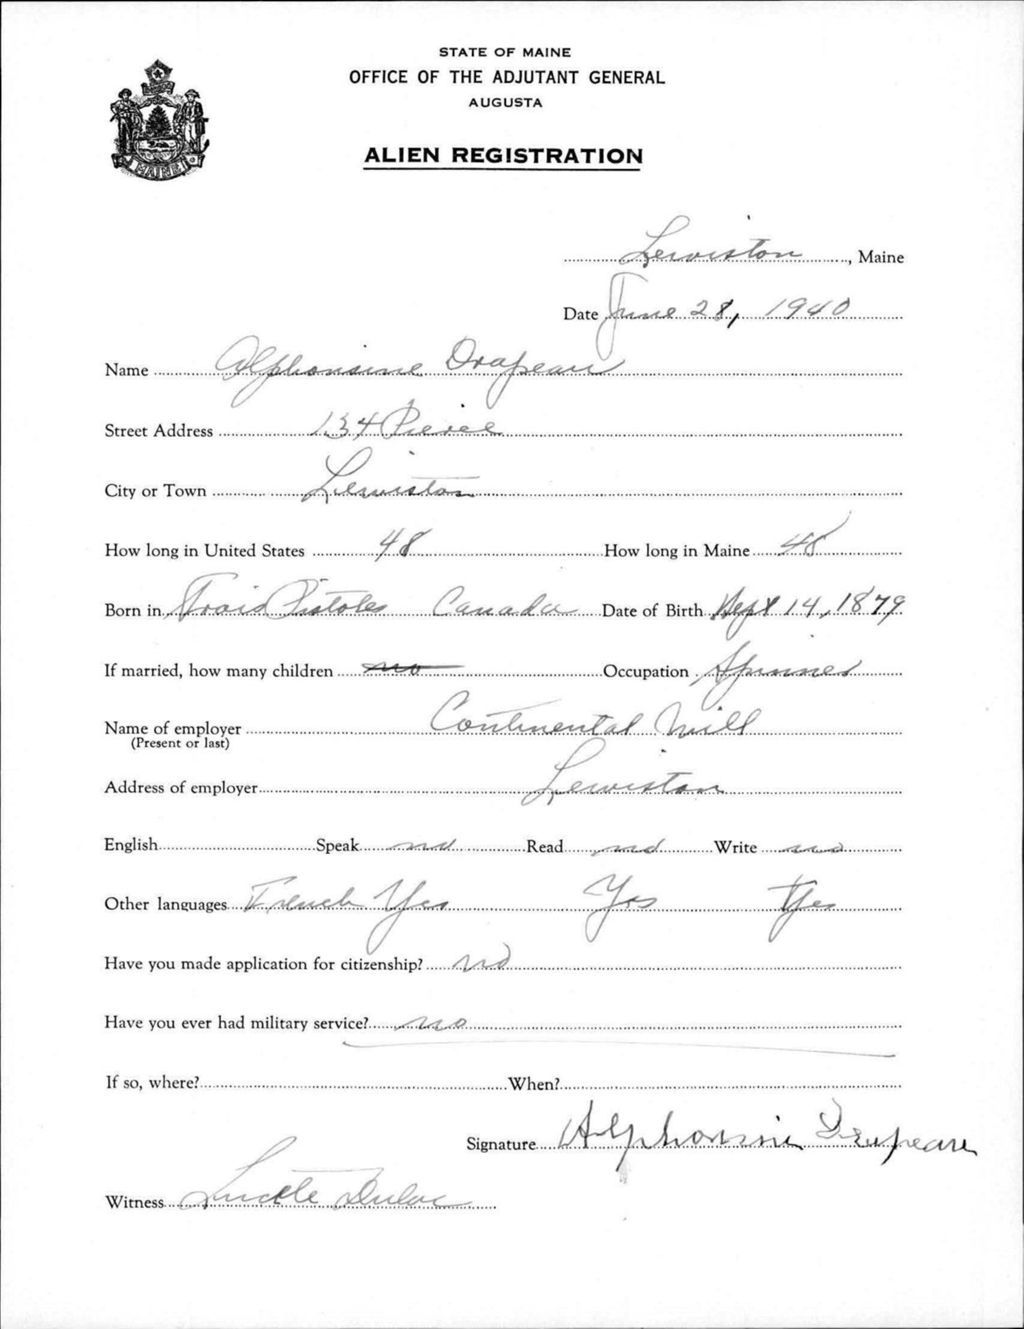 STATE OF MAINE
OFFICE OF THE ADJUTANT GENERAL
AUGUSTA
ALIEN REGISTRATION
MAINE
Lewiston, Maine
Date June 28, 1940
Name Alphonsine Drapeau
Street Address 134 Pierce
City or Town Lewiston
How long in United States 48 How long in Maine 48
Born in Trois Pistoles Canada Date of Birth Sept 14, 1879
If married, how many children no Occupation Spinner
Name of employer Continental Mill
(Present or last)
Address of employer Lewiston
English Speak no Read no Write no
Other languages French Yes Yes Yes
Have you made application for citizenship? no
Have you ever had military service? no
If so, where? When?
Signature Alphonsine Drapeau
Witness Lucille Dulac